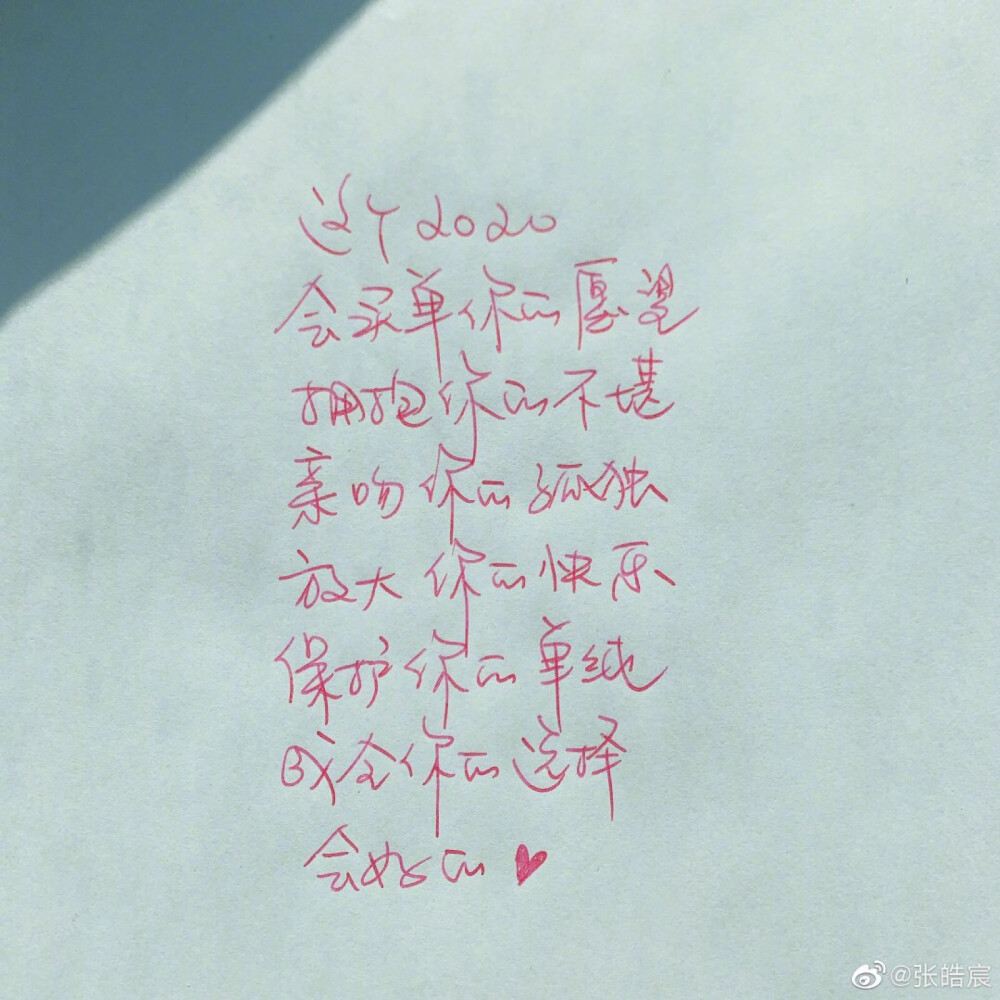 这个2020
会买单你的愿望
拥抱你的不堪
亲吻你的孤独
放大你的快乐
保护你的单纯
成全你的选择
会好的♥
@张皓宸